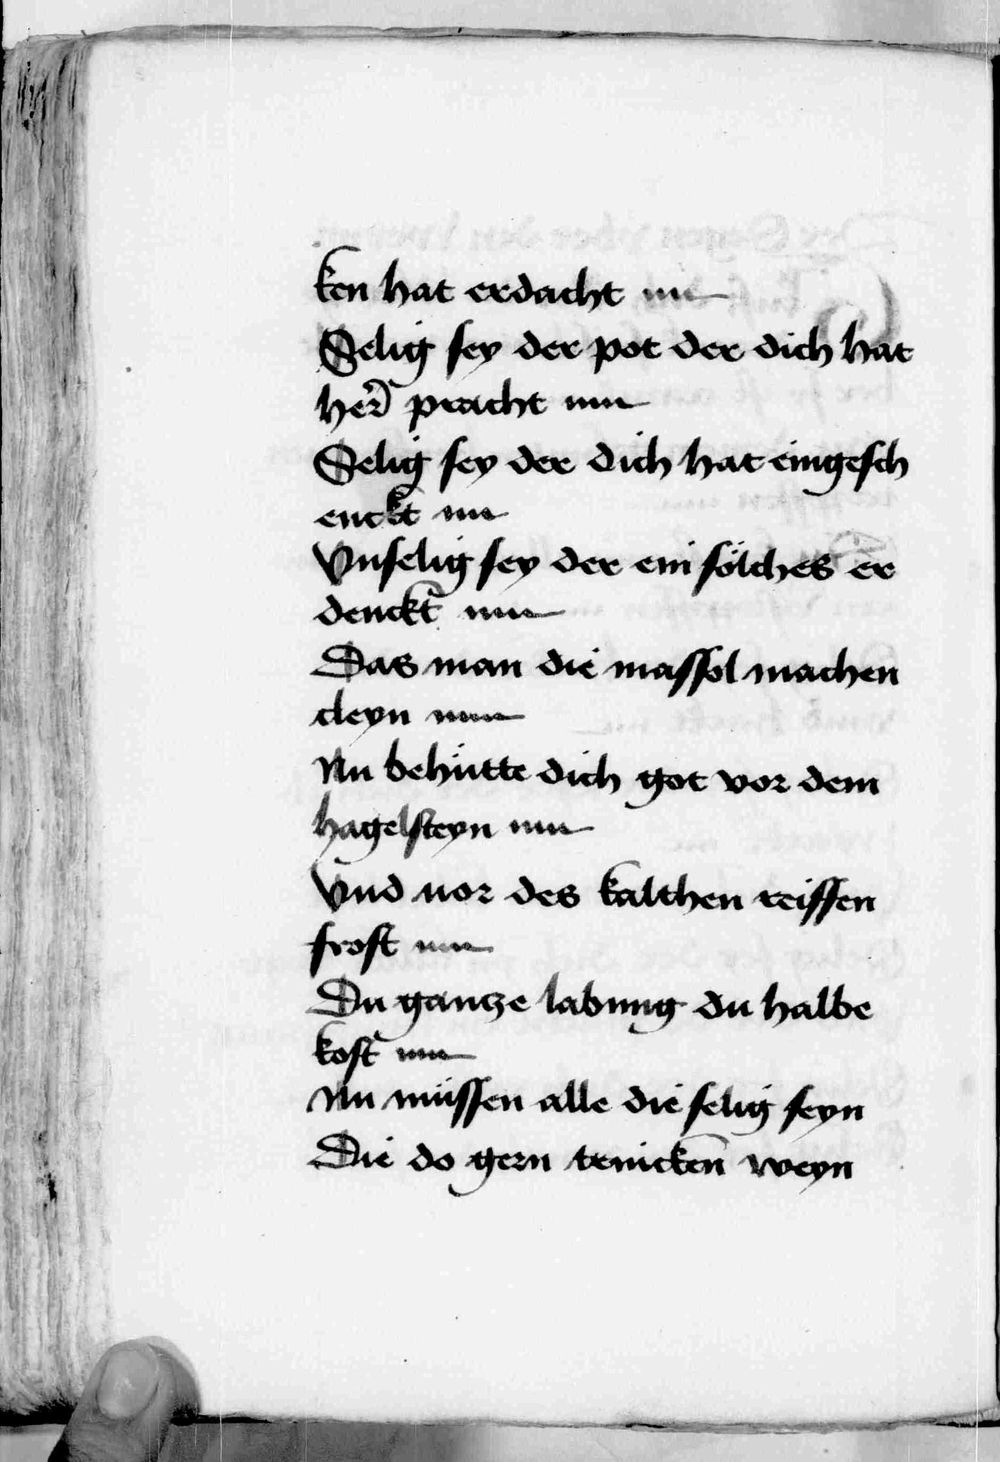 ken hat erdacht
Selig sey der pot der dich hat
her̃ pracht
Selig sey der dich hat eingesch
enckt
Vnselig sey der ein sölches er
denckt
Das man die massol machen
cleyn
Nu behütte dich got vor dem
hagelsteyn
Vnd uor des kalthen reissen
frost
Du gantze labung du halbe
kost
Nu müssen alle die selig seyn
Die do gern trincken̄ weyn